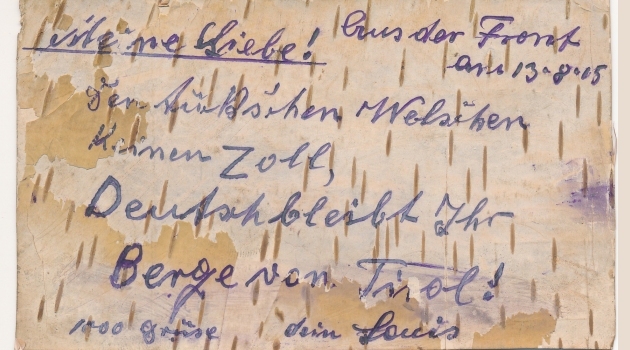 Meine Liebe! Aus der Front
am 13-8-15
Den tückschen Welschen
Keinen Zoll,
Deutsch bleibt Ihr
Berge von Tirol!
1000 Grüse dein Louis